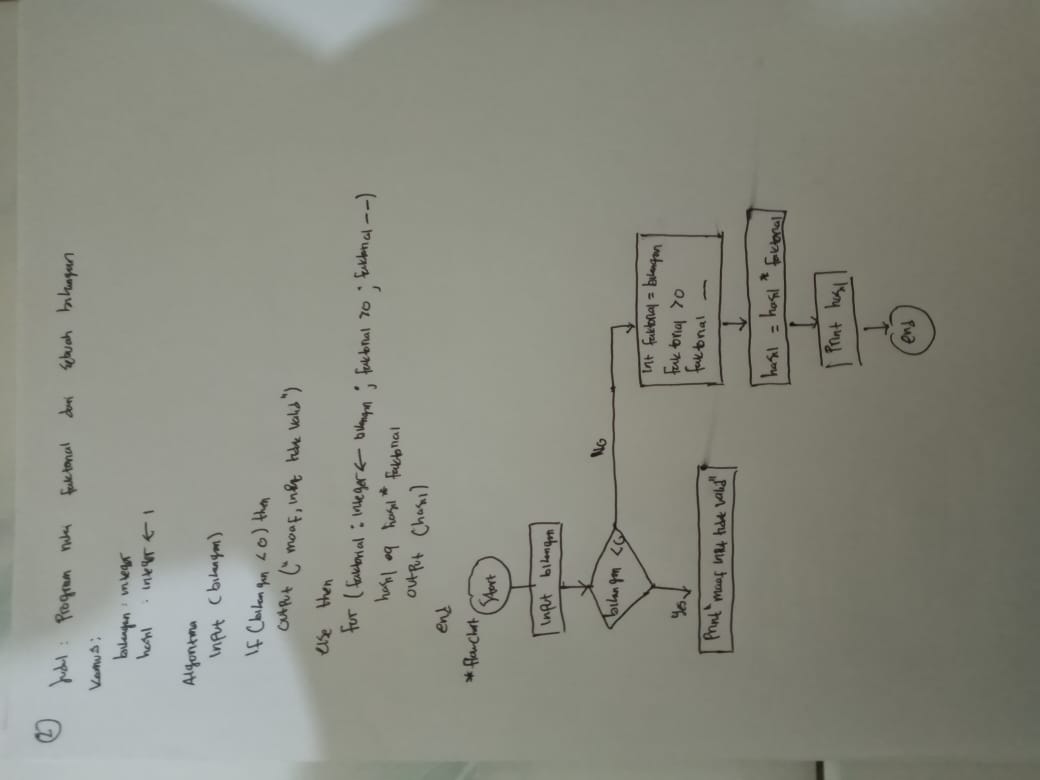 2
Judul : Program nilai faktorial dari sebuah bilangan
Kamus :
bilangan : integer
hasil : integer ← 1
Algoritma
Input (bilangan)
If (bilangan < 0) then
output ("maaf, input tidak valid")
else then
for (faktorial : integer ← bilangan ; faktorial > 0 ; faktorial --)
hasil eq hasil * faktorial
output (hasil)
end
* flowchart
Start
input bilangan
bilangan < 0
No
Yes
Print "maaf input tidak valid"
int faktorial = bilangan
faktorial > 0
faktorial --
hasil = hasil * faktorial
Print hasil
end